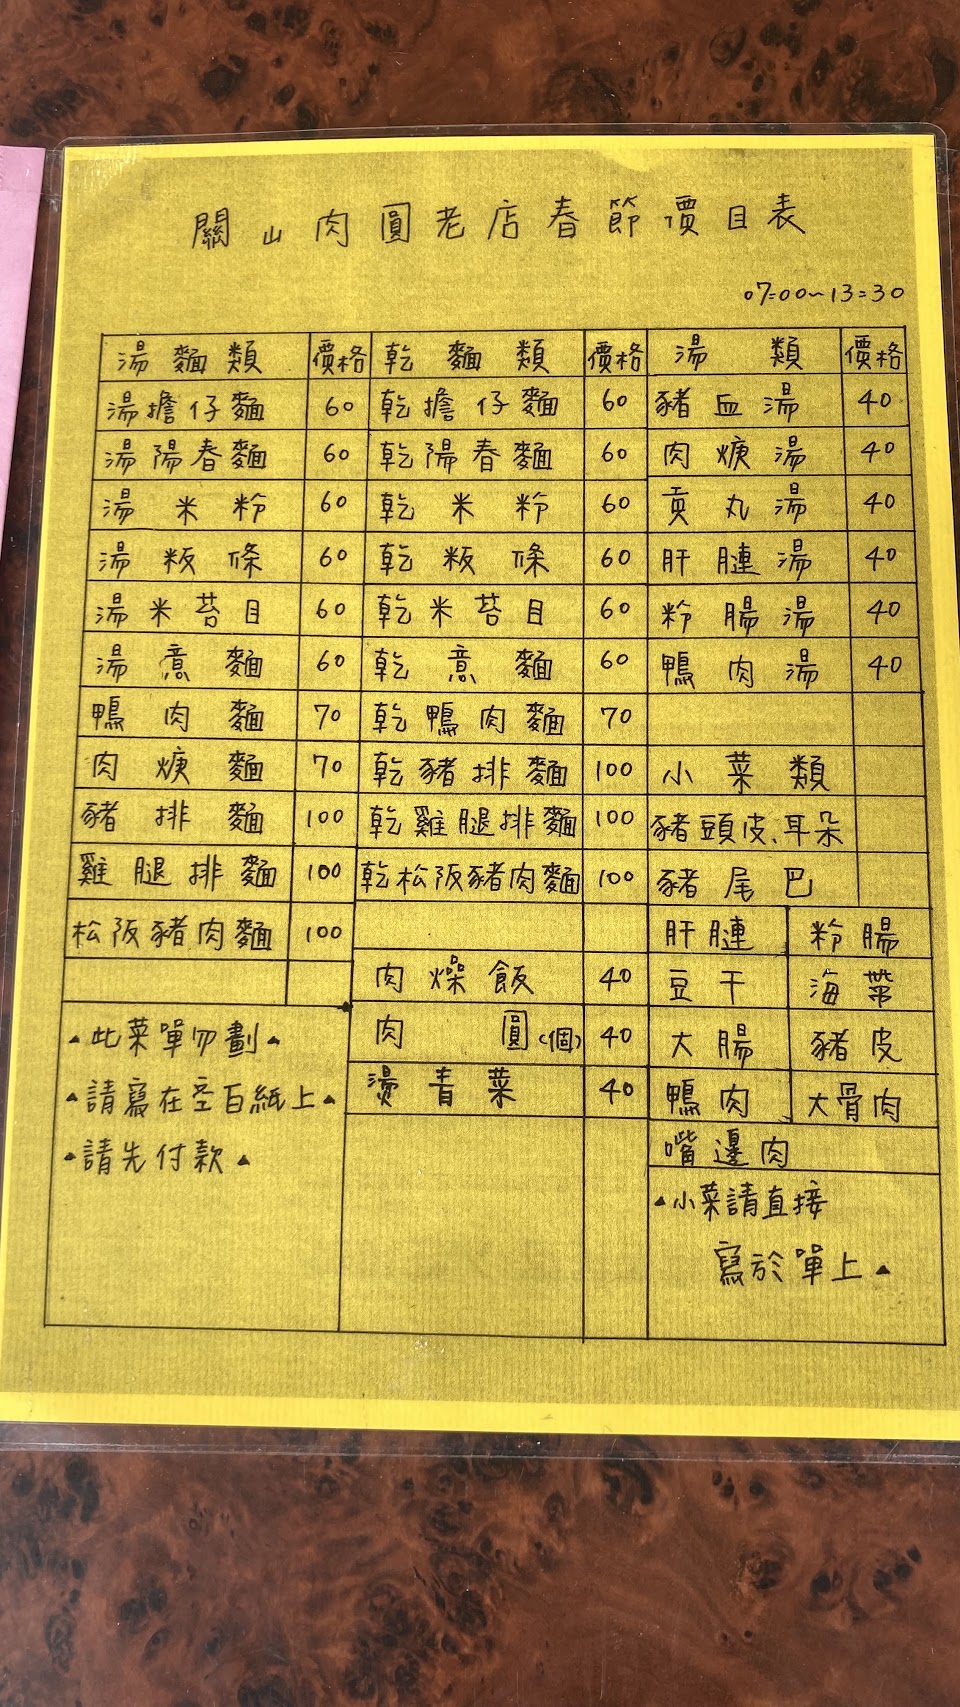 關山肉圓老店春節價目表
07:00~13:30
湯麵類 價格 乾麵類 價格 湯類 價格
湯擔仔麵 60 乾擔仔麵 60 豬血湯 40
湯陽春麵 60 乾陽春麵 60 肉焿湯 40
湯米粉 60 乾米粉 60 貢丸湯 40
湯粄條 60 乾粄條 60 肝膷湯 40
湯米苔目 60 乾米苔目 60 粉腸湯 40
湯意麵 60 乾意麵 60 鴨肉湯 40
鴨肉麵 70 乾鴨肉麵 70
肉焿麵 70 乾豬排麵 100 小菜類
豬排麵 100 乾雞腿排麵 100 豬頭皮、耳朵
雞腿排麵 100 乾松阪豬肉麵 100 豬尾巴
松阪豬肉麵 100 肝膷 粉腸
肉燥飯 40 豆干 海帶
▲此菜單勿劃▲ 肉圓(個) 40 大腸 豬皮
▲請寫在空白紙上▲ 燙青菜 40 鴨肉 大骨肉
▲請先付款▲ 嘴邊肉
▲小菜請直接
寫於單上▲